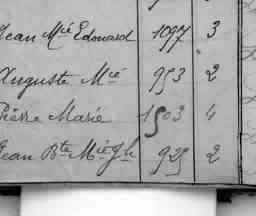 Jean Mie Edouard 1097 3
Auguste Mie 953 2
Pierre Marie 1503 4
Jean Bte Mie Jh 925 2